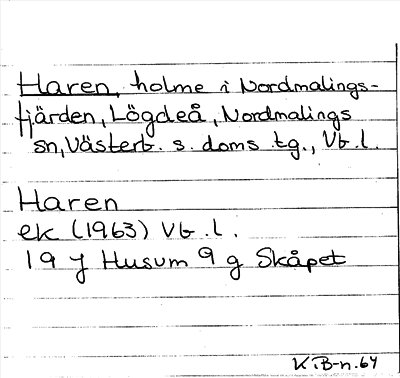 Haren, holme i Nordmalings-
fjärden, Lögdeå, Nordmalings
sn, Västerb. s. doms tg., Vb. l.
Haren
ek (1963) Vb. l.
19 J Husum 9 g Skåpet
K. B-n. 64